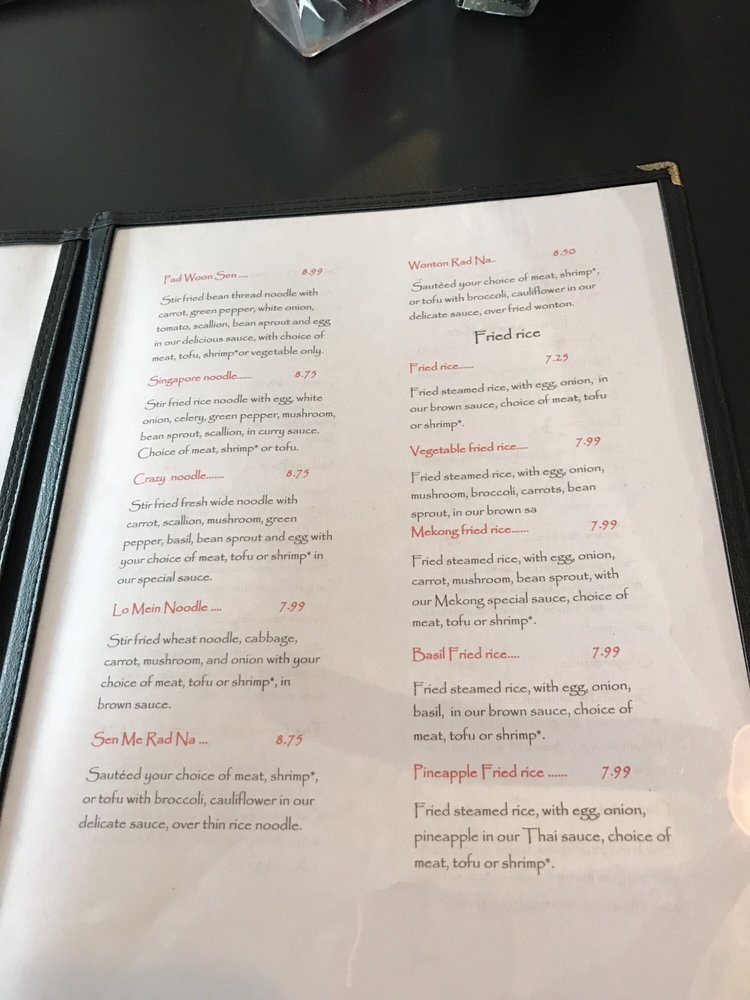 Pad Woon Sen .... 8.99
Stir fried bean thread noodle with
carrot, green pepper, white onion,
tomato, scallion, bean sprout and egg
in our delicious sauce, with choice of
meat, tofu, shrimp*or vegetable only.
Singapore noodle...... 8.75
Stir fried rice noodle with egg, white
onion, celery, green pepper, mushroom,
bean sprout, scallion, in curry sauce.
Choice of meat, shrimp* or tofu.
Crazy noodle....... 8.75
Stir fried fresh wide noodle with
carrot, scallion, mushroom, green
pepper, basil, bean sprout and egg with
your choice of meat, tofu or shrimp* in
our special sauce.
Lo Mein Noodle .... 7.99
Stir fried wheat noodle, cabbage,
carrot, mushroom, and onion with your
choice of meat, tofu or shrimp*, in
brown sauce.
Sen Me Rad Na ... 8.75
Sautéed your choice of meat, shrimp*,
or tofu with broccoli, cauliflower in our
delicate sauce, over thin rice noodle.
Wonton Rad Na.. 8.50
Sautéed your choice of meat, shrimp*,
or tofu with broccoli, cauliflower in our
delicate sauce, over fried wonton.
Fried rice
Fried rice...... 7.25
Fried steamed rice, with egg, onion, in
our brown sauce, choice of meat, tofu
or shrimp*.
Vegetable fried rice.... 7.99
Fried steamed rice, with egg, onion,
mushroom, broccoli, carrots, bean
sprout, in our brown sa
Mekong fried rice...... 7.99
Fried steamed rice, with egg, onion,
carrot, mushroom, bean sprout, with
our Mekong special sauce, choice of
meat, tofu or shrimp*.
Basil Fried rice.... 7.99
Fried steamed rice, with egg, onion,
basil, in our brown sauce, choice of
meat, tofu or shrimp*.
Pineapple Fried rice ...... 7.99
Fried steamed rice, with egg, onion,
pineapple in our Thai sauce, choice of
meat, tofu or shrimp*.